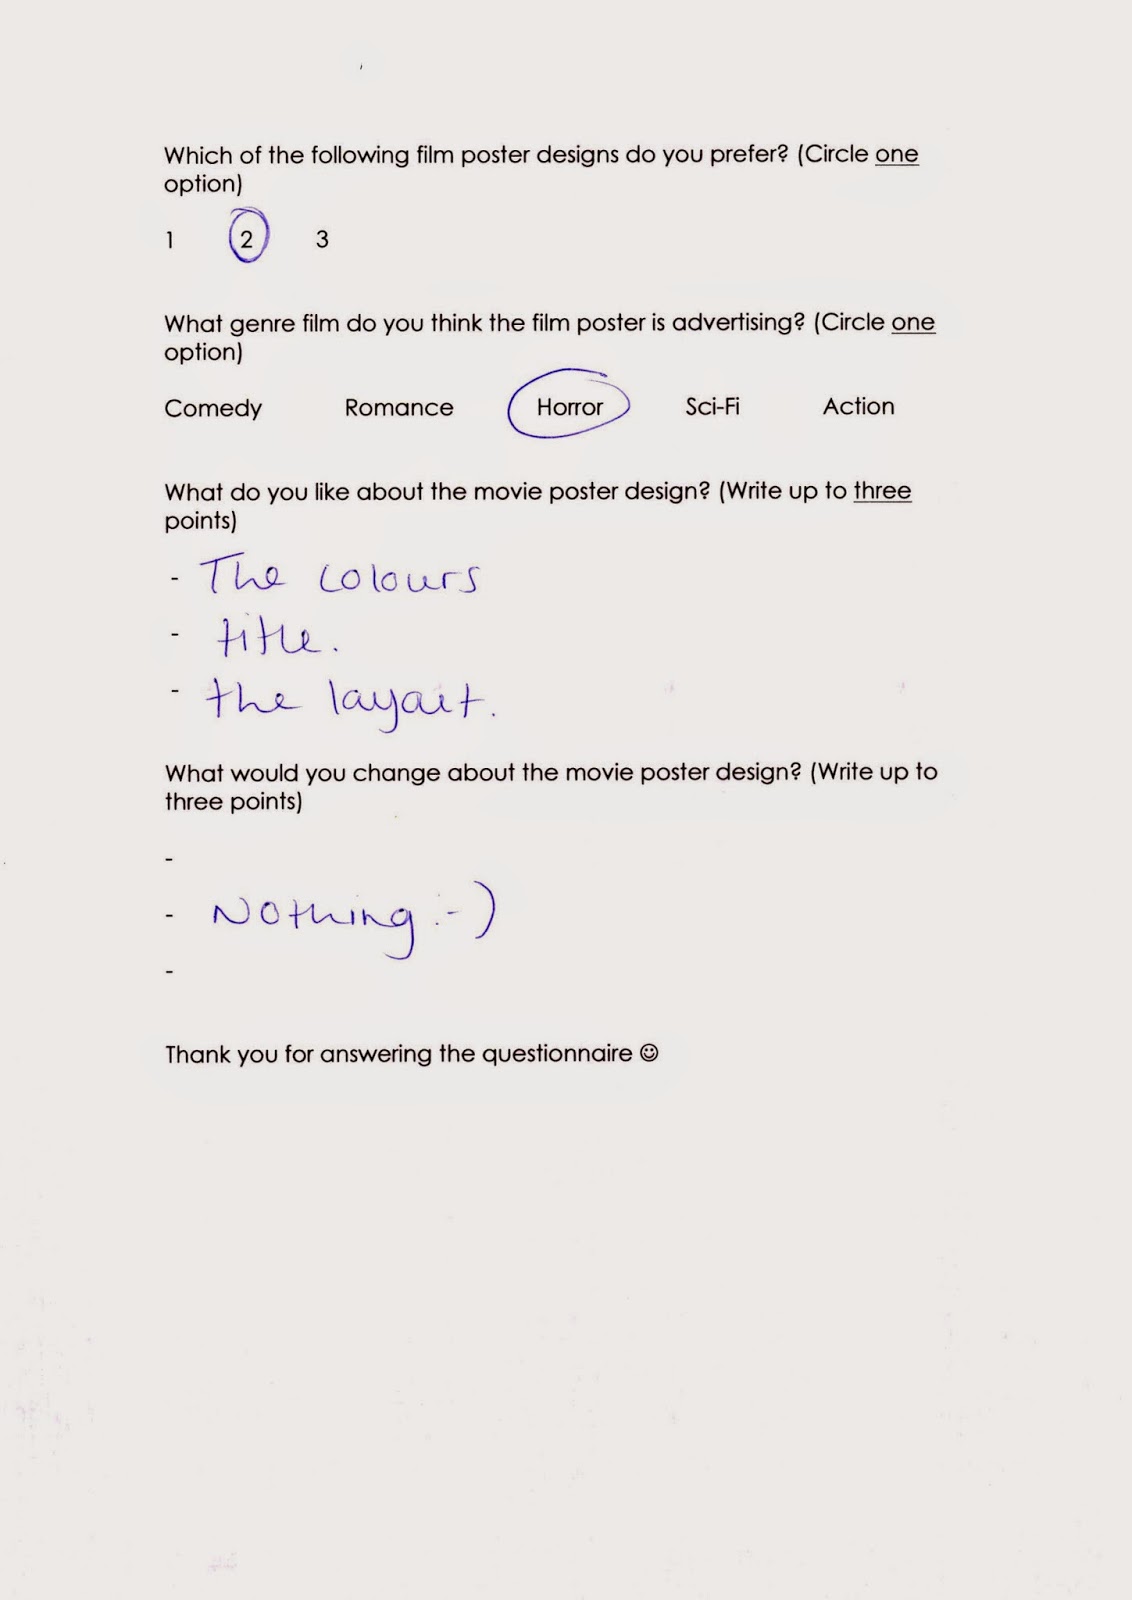 Which of the following film poster designs do you prefer? (Circle one
option)
1 2 3
What genre film do you think the film poster is advertising? (Circle one
option)
Comedy Romance Horror Sci-Fi Action
What do you like about the movie poster design? (Write up to three
points)
- The colours
- title.
- the layout.
What would you change about the movie poster design? (Write up to
three points)
-
- Nothing :-)
-
Thank you for answering the questionnaire ☺